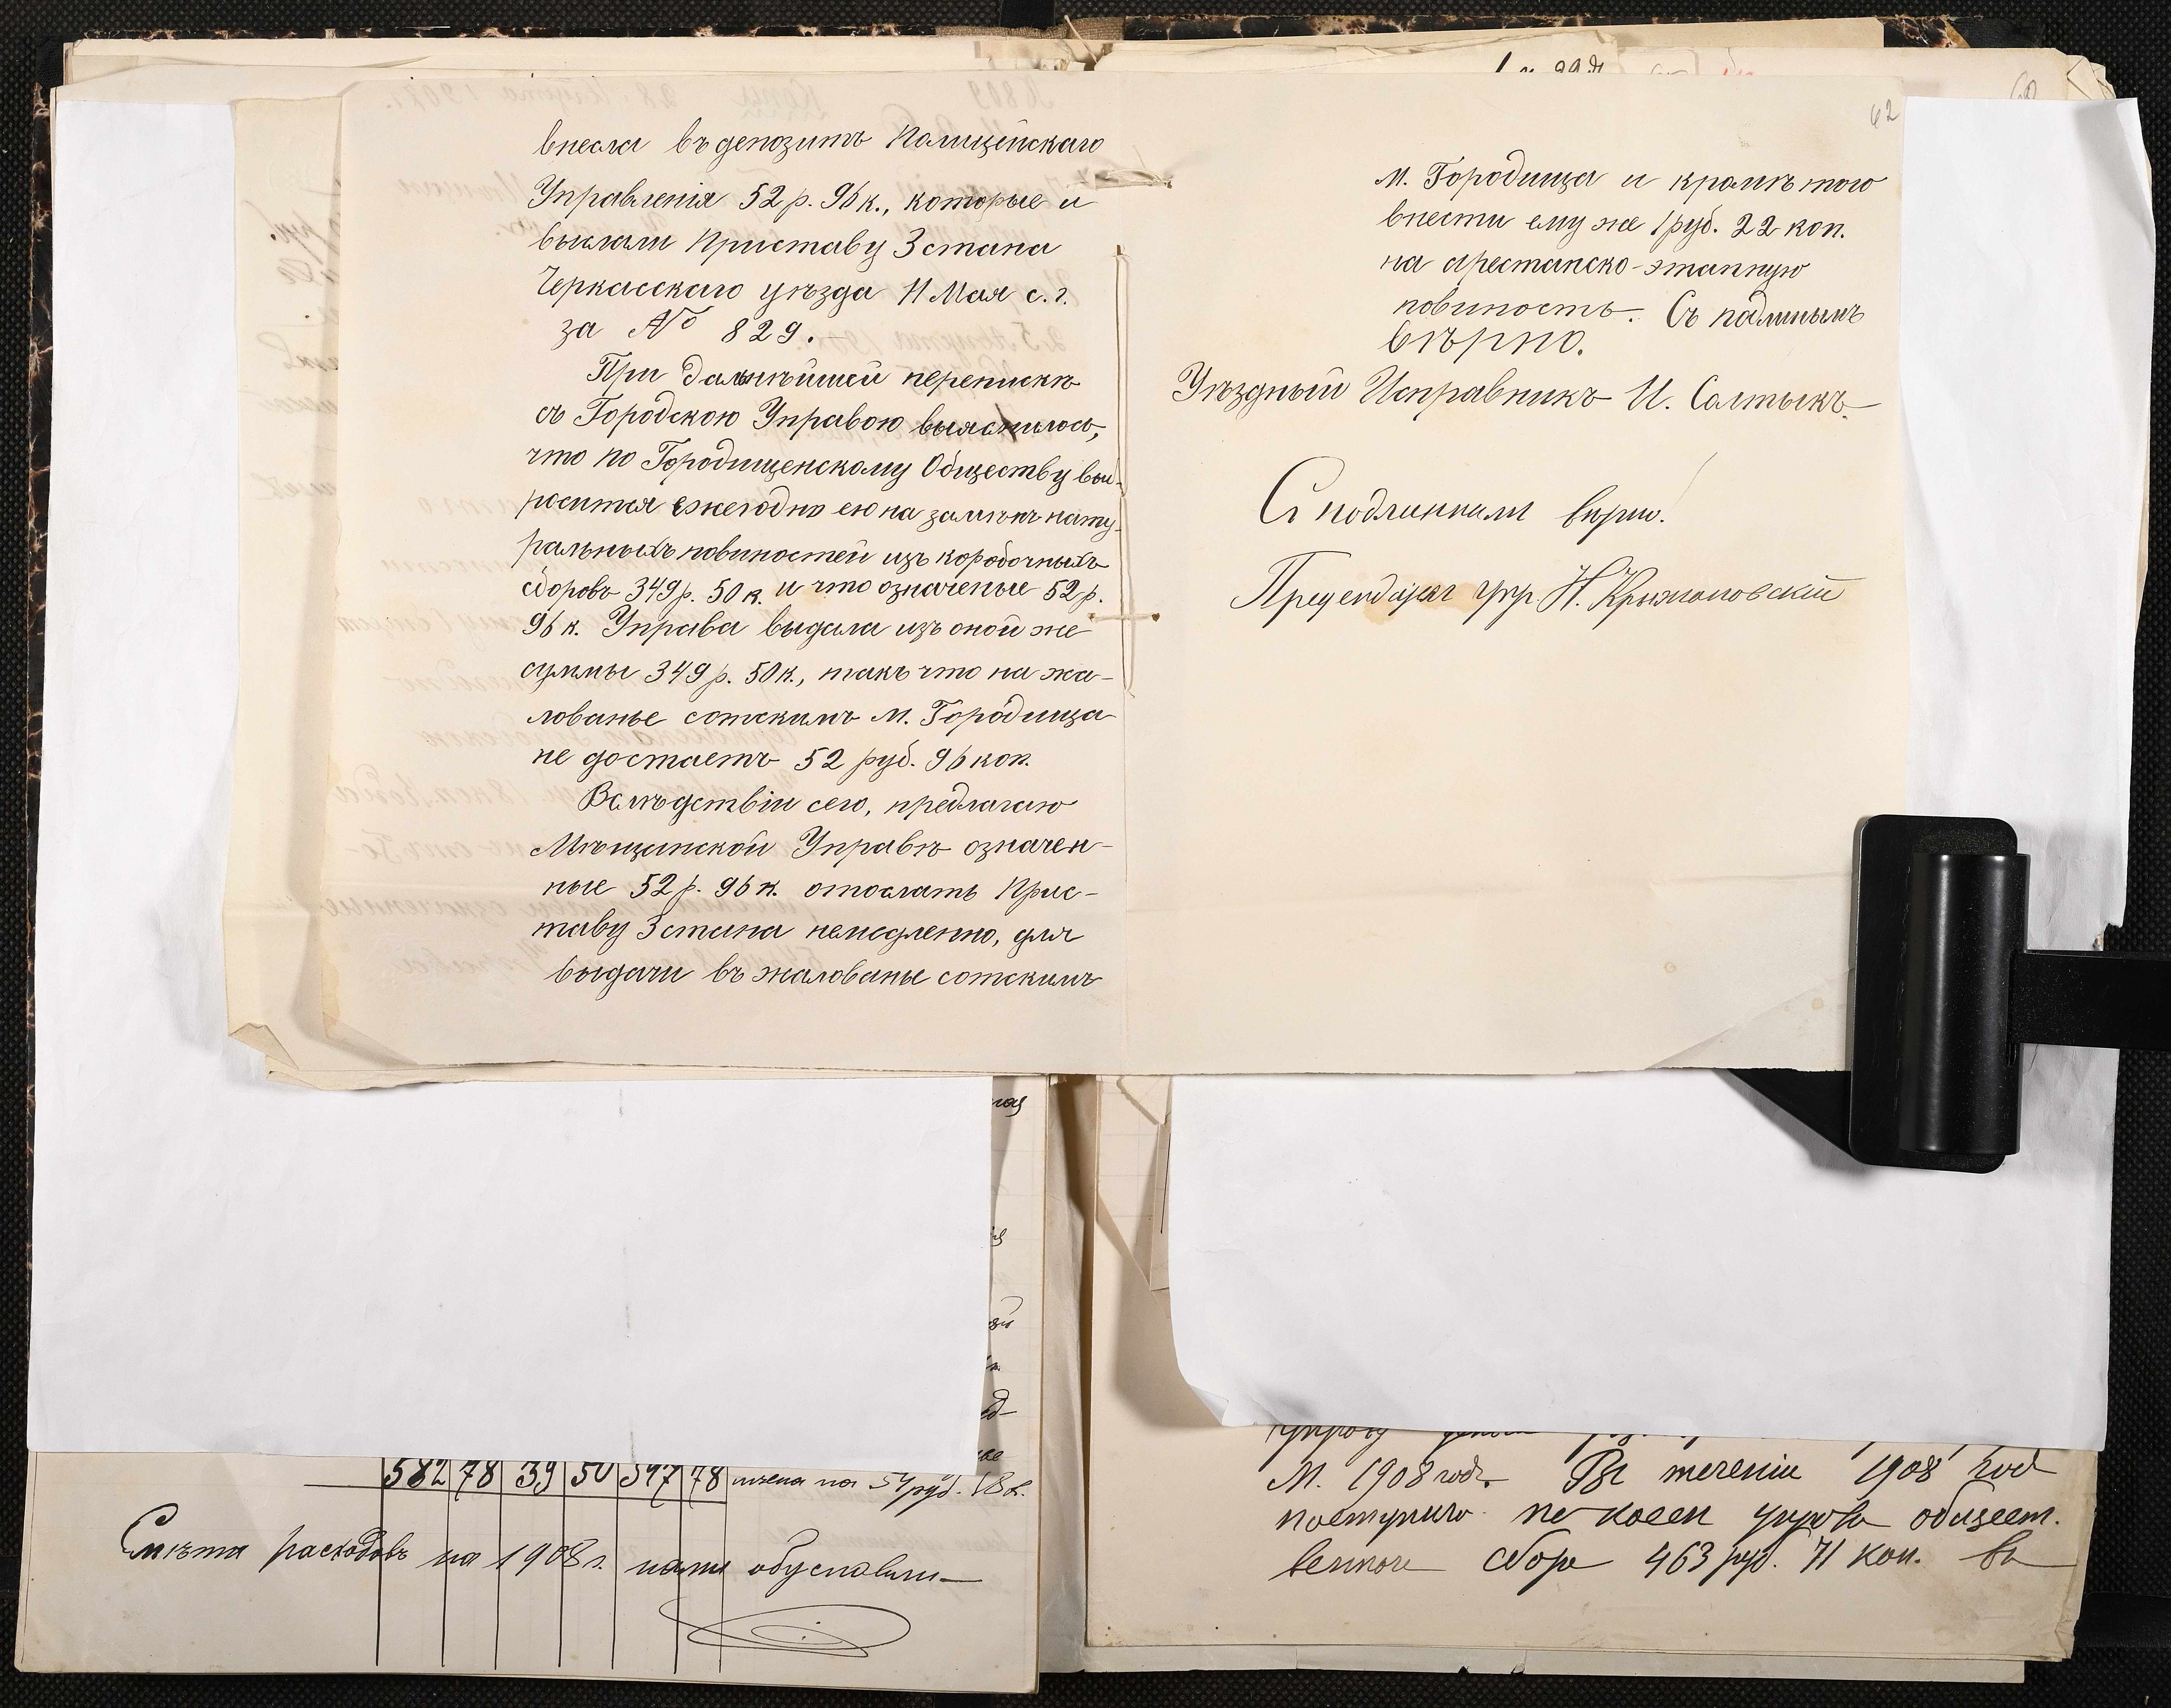 внесла въ депозитъ Полицейскаго
Управленія 52 р. 96 к., которые и
выслали Приставу 3 стана
Черкасскаго уѣзда 11 Мая с. г.
за № 829.
При дальнѣйшей перепискѣ
съ Городскою Управою выяснилось,
что по Городищенскому Обществу вы-
росится ежегодно ею на замѣнъ нату-
ральныхъ повиностей изъ коробочныхъ
сборовъ 349 р. 50 к. и что означеные 52 р.
96 к. Управа выдала изъ оной же
суммы 349 р. 50 к., такъ что на жа-
лованье сотскимъ м. Городища
не достаетъ 52 руб. 96 коп.
Вслѣдствіи сего, предлагаю
Мѣщанской Управѣ означен-
ные 52 р. 96 к. отослать Прис-
таву 3 стана немедленно, для
выдачи въ жалованье сотскимъ
62
м. Городища и кромѣ того
внести ему же 1 руб. 22 коп.
на арестанско-этапную
повиность. Съ подлинымъ
вѣрно.
Уѣздный Исправникъ И. Салтыкъ.
С подлинным вѣрно.
Н. Крыжановский
582 78 39 50 547 78 на 54 руб. 18 к.
Смѣта расходовъ на 1908 г. нами
М. 1908 годъ. Въ теченіи 1908 год
поступило общест.
веннаго сбора 463 руб. 71 коп. въ